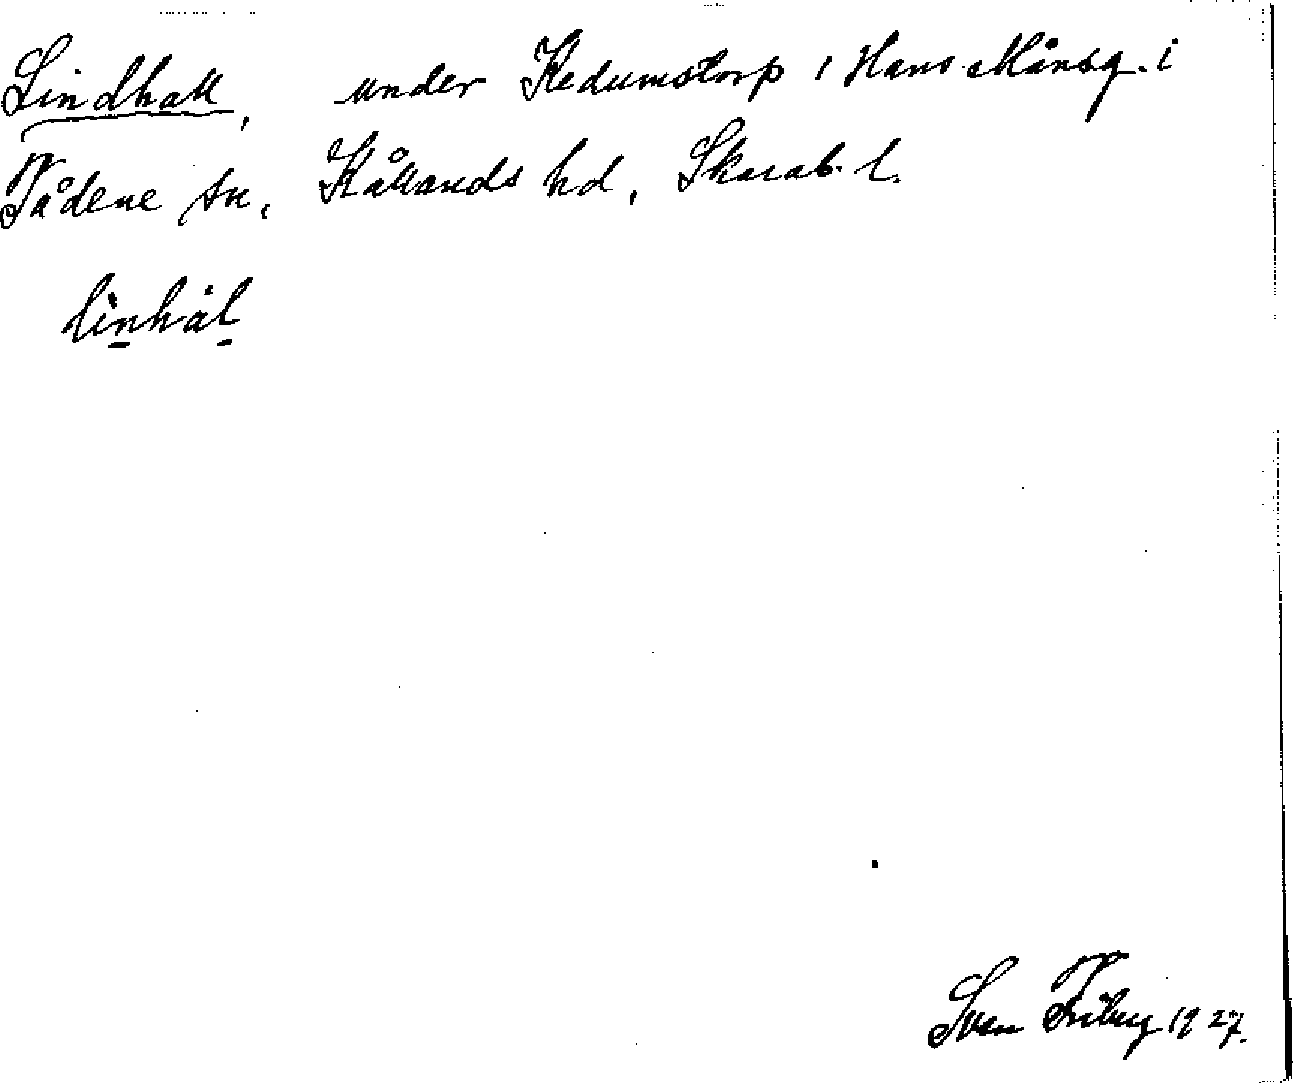 Lindhall, under Kedumstorp, Hans Månsg. i
Tådene sn, Kållands hd, Skarab. l.
linhàl
Sven Friberg 1927.